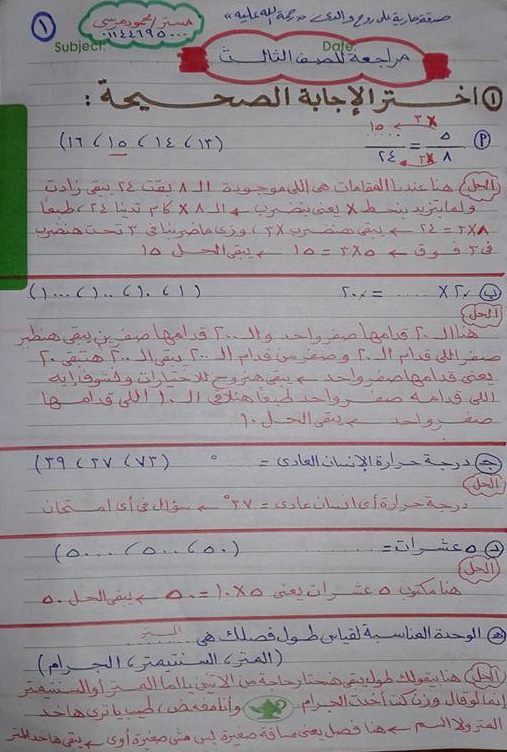 صدقة جارية على روح والدى "رحمة الله عليه"
مستر / محمود مرسى
٠١١٤٤٦٩٥٠٠٠
١
Subject:
Date:
مراجعة للصف الثالث
١ اختر الإجابة الصحيحة :
٣ X ١٥
P ٥/٨ = ...../٢٤ (١٣ ، ١٤ ، ١٥ ، ١٦)
٣ X
الحل هنا عندنا المقامات هى اللى موجودة الـ ٨ بقت ٢٤ يبقى زادت
ولما بتزيد بنحط X يعنى بنضرب ← الـ ٨ X كام تدينا ٢٤ ، طبعا
٨ X ٣ = ٢٤ ← يبقى هنضرب X ٣ ، وزى ماضربنا فى ٣ تحت هنضرب
فى ٣ فوق ← ٥ X ٣ = ١٥ ← يبقى الحل ١٥
ب ٢٠ X ...... = ٢٠٠ (١ ، ١٠ ، ١٠٠ ، ١٠٠٠)
الحل
هنا الـ ٢٠ قدامها صفر واحد والـ ٢٠٠ قدامها صفرين يبقى هنطير
صفر اللى قدام الـ ٢٠ وصفر من قدام الـ ٢٠٠ يبقى الـ ٢٠٠ هتبقى ٢٠
يعنى قدامها صفر واحد ← يبقى هنروح للاختيارات ونشوف ايه
اللى قدامه صفر واحد طبعا هنلاقى الـ ١٠ اللى قدامها
صفر واحد ← يبقى الحل ١٠
جـ درجة حرارة الإنسان العادى = ...... ° (٧٣ ، ٣٧ ، ٣٩)
الحل
درجة حرارة أى انسان عادى = ٣٧° ← سؤال فى أى امتحان
د ٥ عشرات = ...... (٥٠ ، ٥٠٠ ، ٥٠٠٠)
الحل
هنا مكتوب ٥ عشرات يعنى ٥ X ١٠ = ٥٠ ← يبقى الحل ٥٠
هـ الوحدة المناسبة لقياس طول فصلك هى المتر
(المتر ، السنتيمتر ، الجرام)
الحل هنا بيقولك طول يبقى هنختار حاجة من الاتنين يا اما المتر أو السنتيمتر
إنما لو قال وزن كنت أخدت الجرام وانا مغمض ، طيب ياترى هاخد
المتر ولا السم ← هنا فصل يعنى مسافة صغيرة بس مش صغيرة أوى ← يبقى هاخد المتر